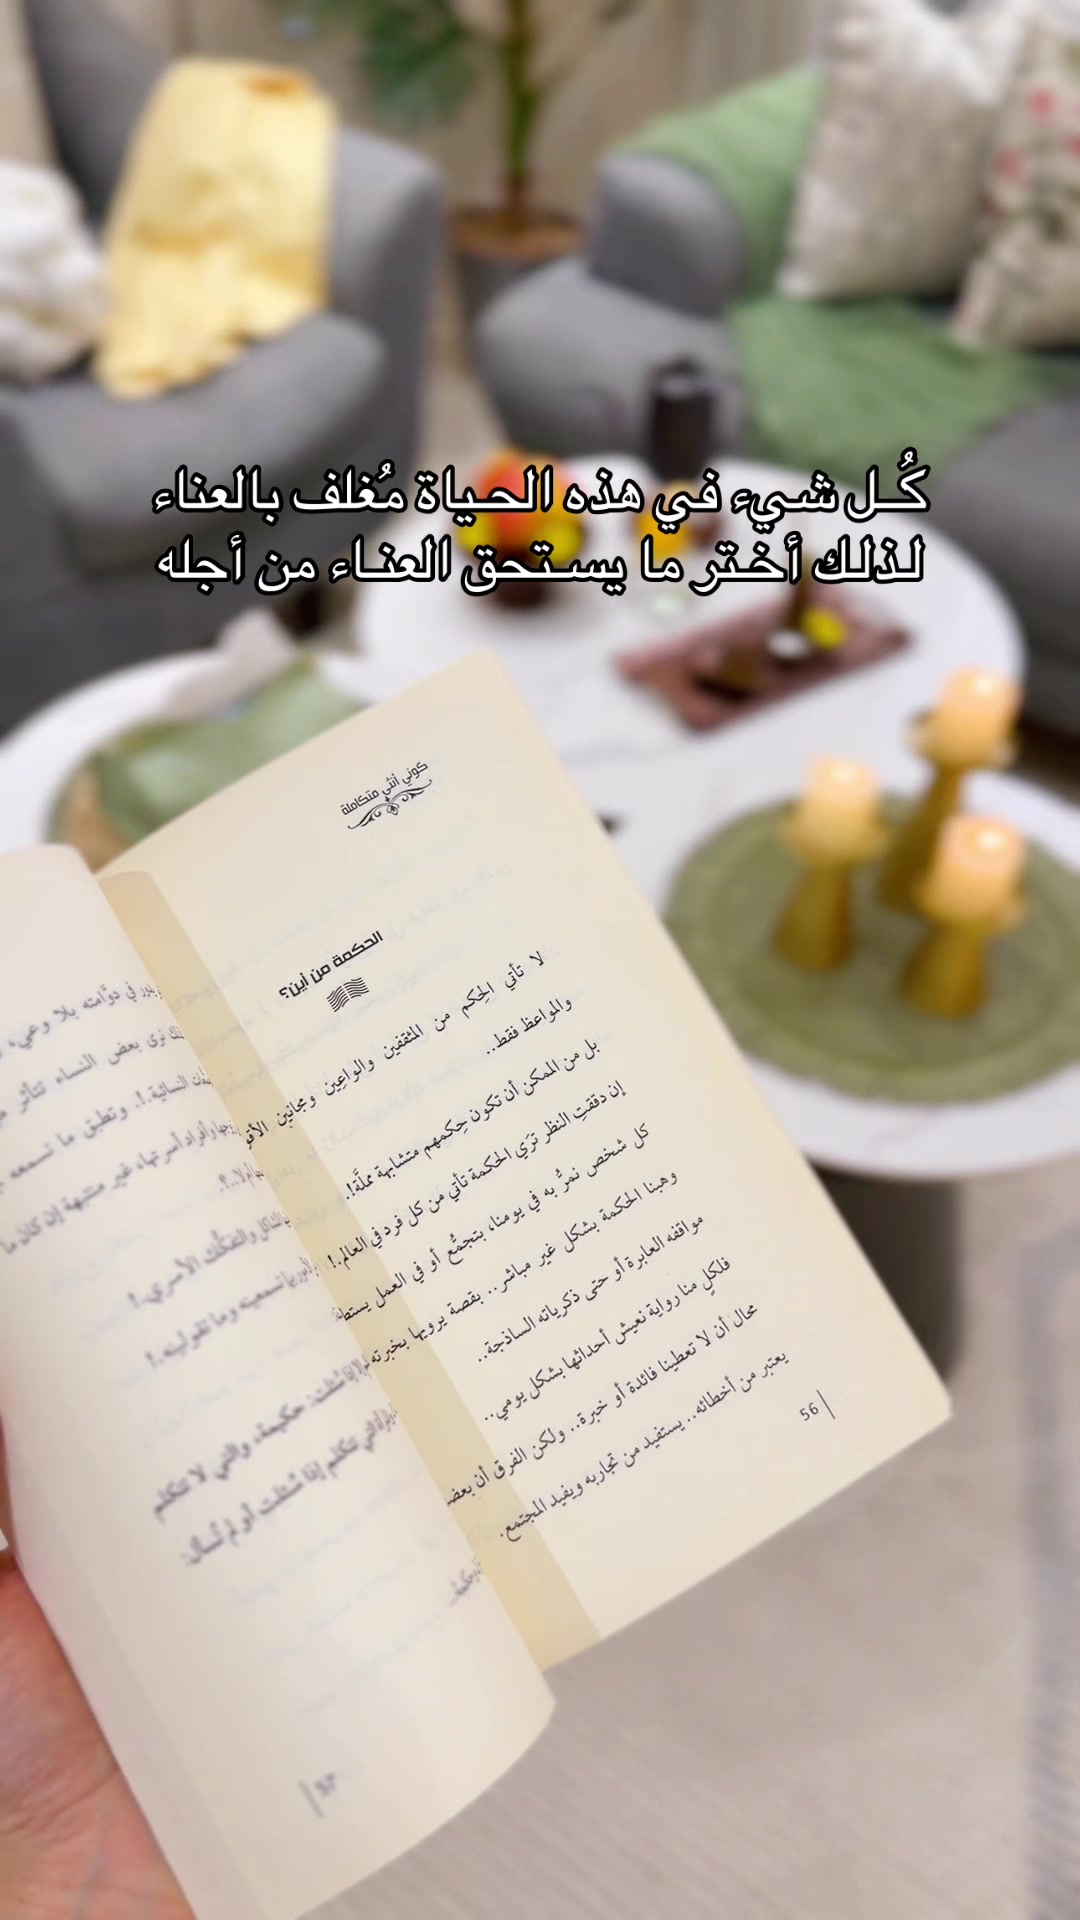 كُـل شـيء فـي هذه الحـياة مُغلف بالعناء
لـذلـك أخـتر ما يسـتحق العنـاء من أجله
كوني أنثى متكاملة
الحكمة من أين؟
لا تأتي الحِكم من المثقفين والواعِين ومجانين
والمواعظ فقط..
بل من الممكن أن تكون حِكمهم متشابهة مملَّة!.
إن دققتِ النظر ترَي الحكمة تأتي من كل فرد في العالم.!
كل شخص نمرُّ به في يومنا، بتجمُّع أو في العمل
وهبنا الحكمة بشكل غير مباشر.. بقصة يرويها بخبرته
مواقفه العابرة أو حتى ذكرياته الساذجة..
فلكلٍ منا رواية نعيش أحداثها بشكل يومي..
محال أن لا تعطينا فائدة أو خبرة.. ولكن الفرق أن
يعتبر من أخطائه.. يستفيد من تجاربه ويفيد المجتمع.
56
في دوَّامته بلا وعي،
نرى بعض النساء تتأثر
النسائية.!. وتطبق ما تسمعه
وأفراد أسرتها، غير منتبهة إن كان ما
والتفكُّك الأسري.!
تسمعينه وما تقولينه.!
إذا سُئلت: حكيمة، والتي لا تتكلم
تتكلم إذا سُئلت أو لم تُسأل: